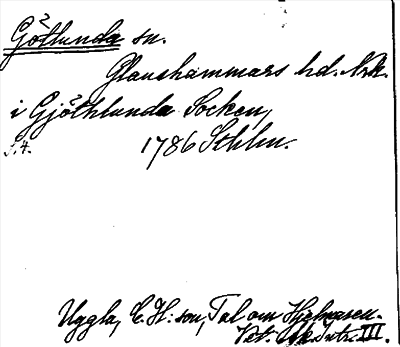 Götlunda sn.
Glanshammars hd. Nrk.
i Gjöthlunda Socken,
s. 4. 1786 Sthlm.
Uggla, C. H:son, Tal om Hjelmaren.
Vet. Ak. Intr. III.